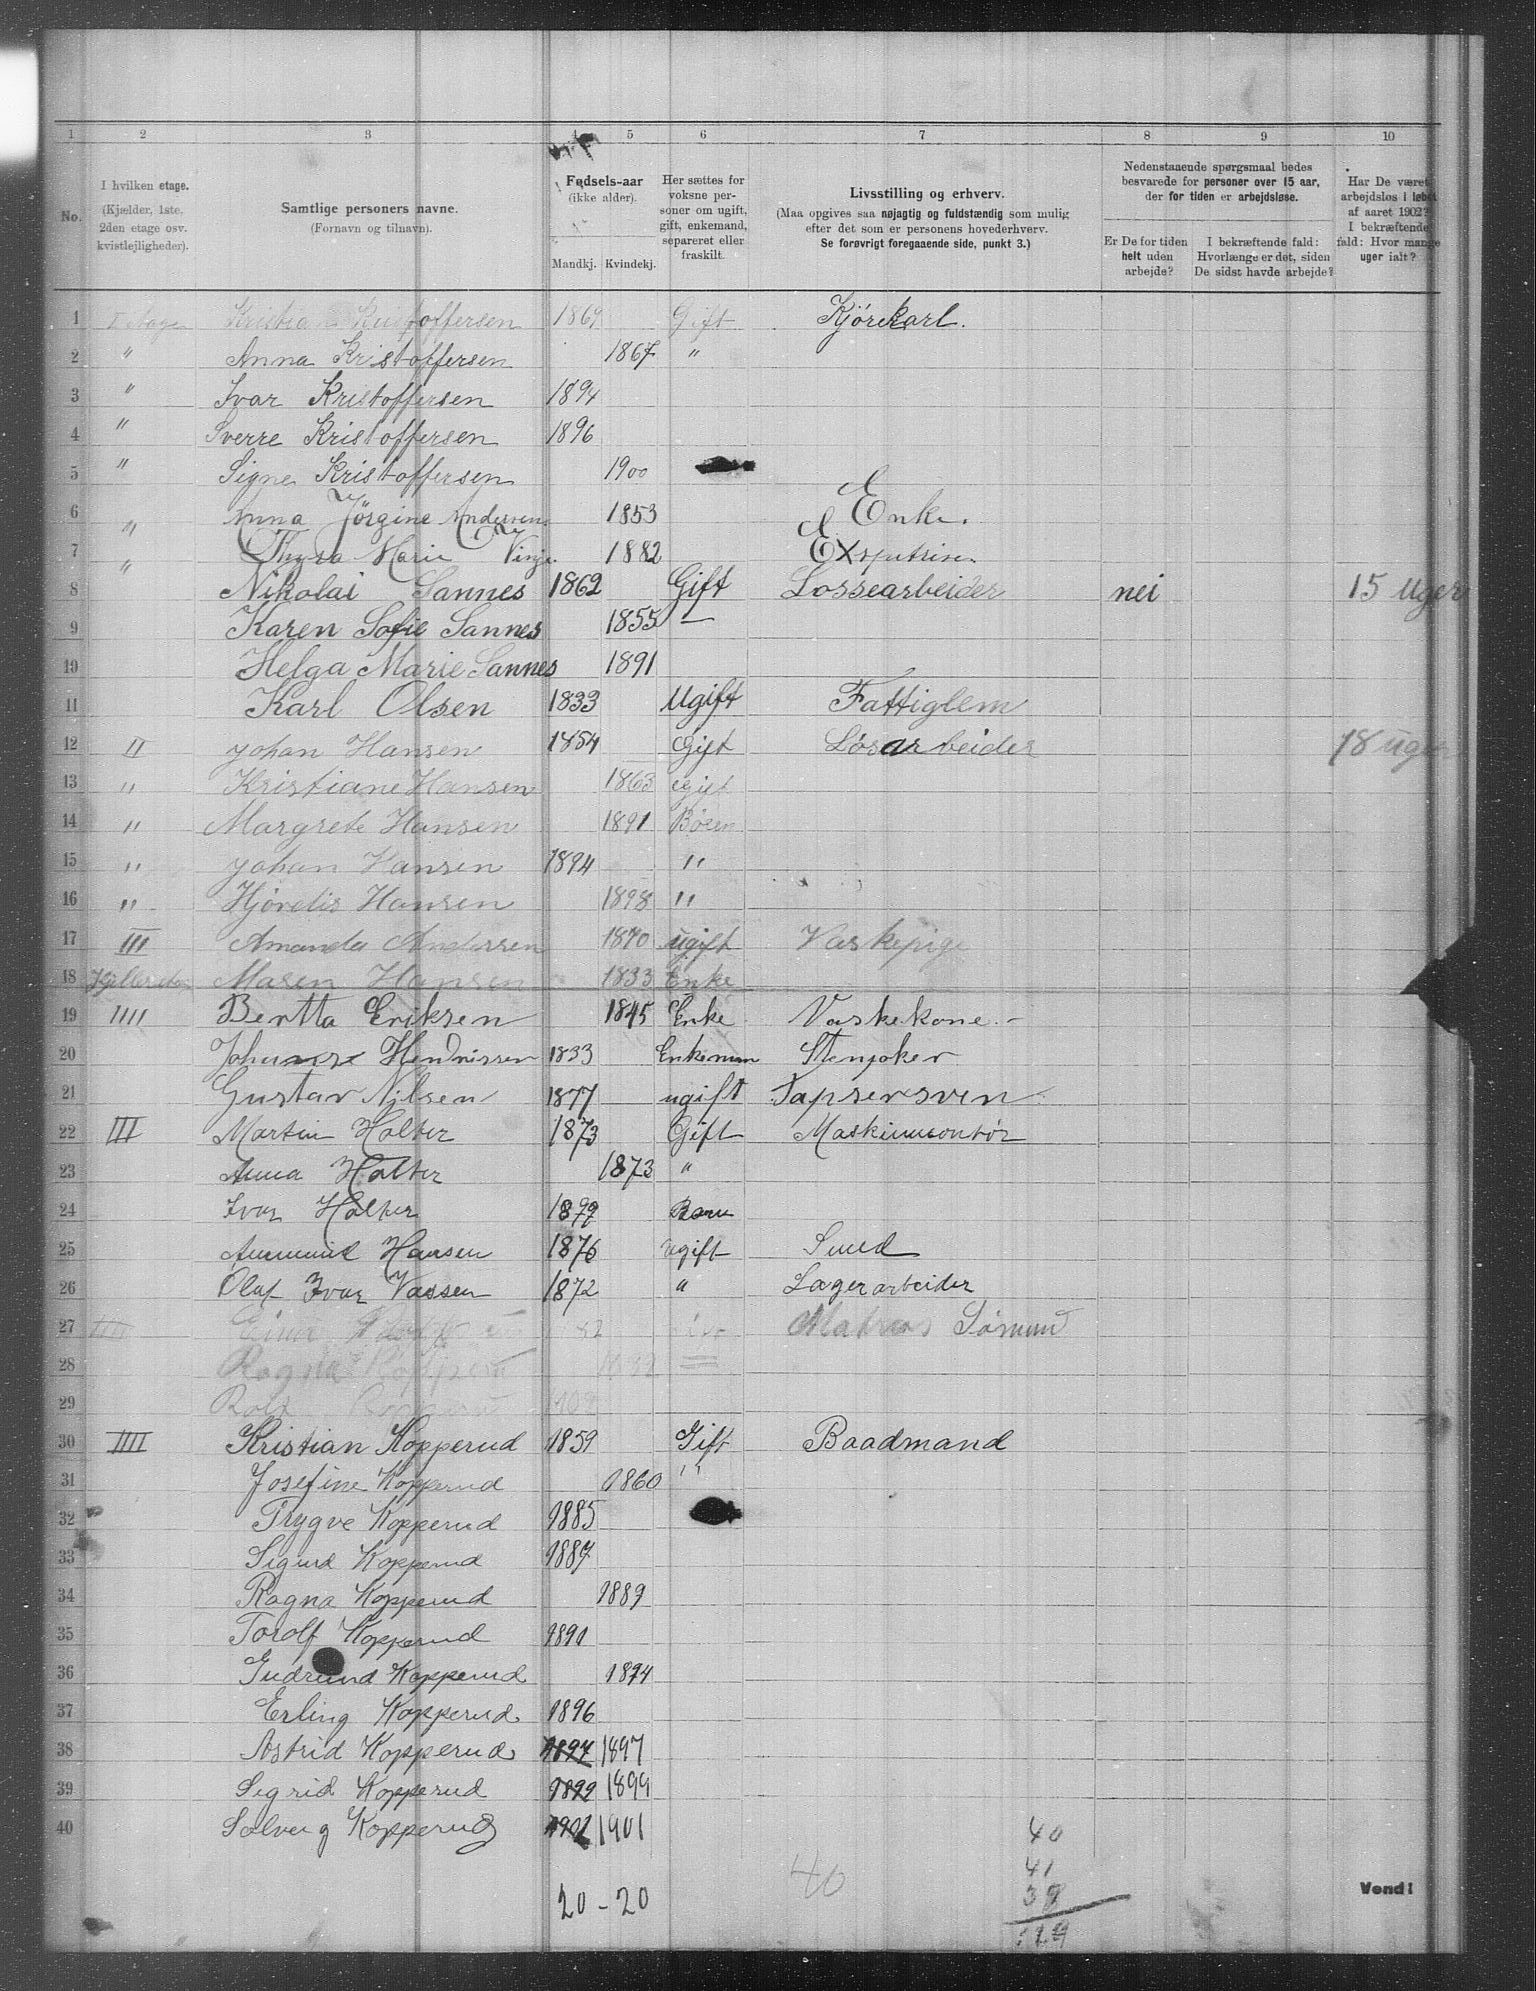 1 2 3 4 5 6 7 8 9 10
No.
I hvilken etage.
(Kjælder, 1ste.
2den etage osv.
kvistlejligheder).
Samtlige personers navne.
(Fornavn og tilnavn).
Fødsels-aar
(ikke alder).
Mandkj. Kvindekj.
Her sættes for
voksne per-
soner om ugift,
gift, enkemand,
separeret eller
fraskilt.
Livsstilling og erhverv.
(Maa opgives saa nøjagtig og fuldstændig som mulig
efter det som er personens hovederhverv.
Se forøvrigt foregaaende side, punkt 3.)
Nedenstaaende spørgsmaal bedes
besvarede for personer over 15 aar,
der for tiden er arbejdsløse.
Er De for tiden
helt uden
arbejde?
I bekræftende fald:
Hvorlænge er det, siden
De sidst havde arbejde?
Har De været
arbejdsløs i løbet
af aaret 1902?
I bekræftende
fald: Hvor mange
uger ialt?
1 I etage Kristian Kristoffersen 1869 Gift Kjörekarl.
2 " Anna Kristoffersen 1867 "
3 " Ivar Kristoffersen 1894
4 " Sverre Kristoffersen 1896
5 " Signe Kristoffersen 1900
6 " Anna Jörgine Andersen 1853 Enke.
7 " Thyra Marie Vinje. 1882
8 Nikolai Sannes 1862 Gift Lossearbeider nei 15 Uger
9 Karen Sofie Sannes 1855 —
10 Helga Marie Sannes 1891
11 Karl Olsen 1833 Ugift Fattiglem
12 II Johan Hansen 1854 Gift Lösarbeider 18 uger
13 " Kristiane Hansen 1863 gift
14 " Margrete Hansen 1891 Børn
15 " Johan Hansen 1894 "
16 " Hjørdis Hansen 1898 "
17 III Amanda Andersen 1870 ugift Vaskepige
18 Maren Hansen 1833 Enke
19 IIII Bertta Eriksen 1845 Enke Vaskekone.
20 1833 Enkeman
21 Gustav Nilsen 1877 ugift
22 III Martin Holter 1873 Gift
23 Anna Holter 1873 "
24 Ivar Holter 1899 Barn
25 Hansen 1876 ugift Smed
26 Olaf Ivar 1872 " Lagerarbeider
27 IIII 82 Matros
28 Ragna Kopperud
29 Rolf Kopperud
30 IIII Kristian Kopperud 1859 Gift Baadmand
31 Josefine Kopperud 1860 "
32 Trygve Kopperud 1885
33 Sigurd Kopperud 1887
34 Ragna Kopperud 1889
35 Torolf Kopperud 1891
36 Gudrund Kopperud 1894
37 Erling Kopperud 1896
38 Astrid Kopperud 1897 1897
39 Sigrid Kopperud 1899 1899
40 Solveig Kopperud 1901 1901
40
41
38
119
20 - 20 40
Vend!